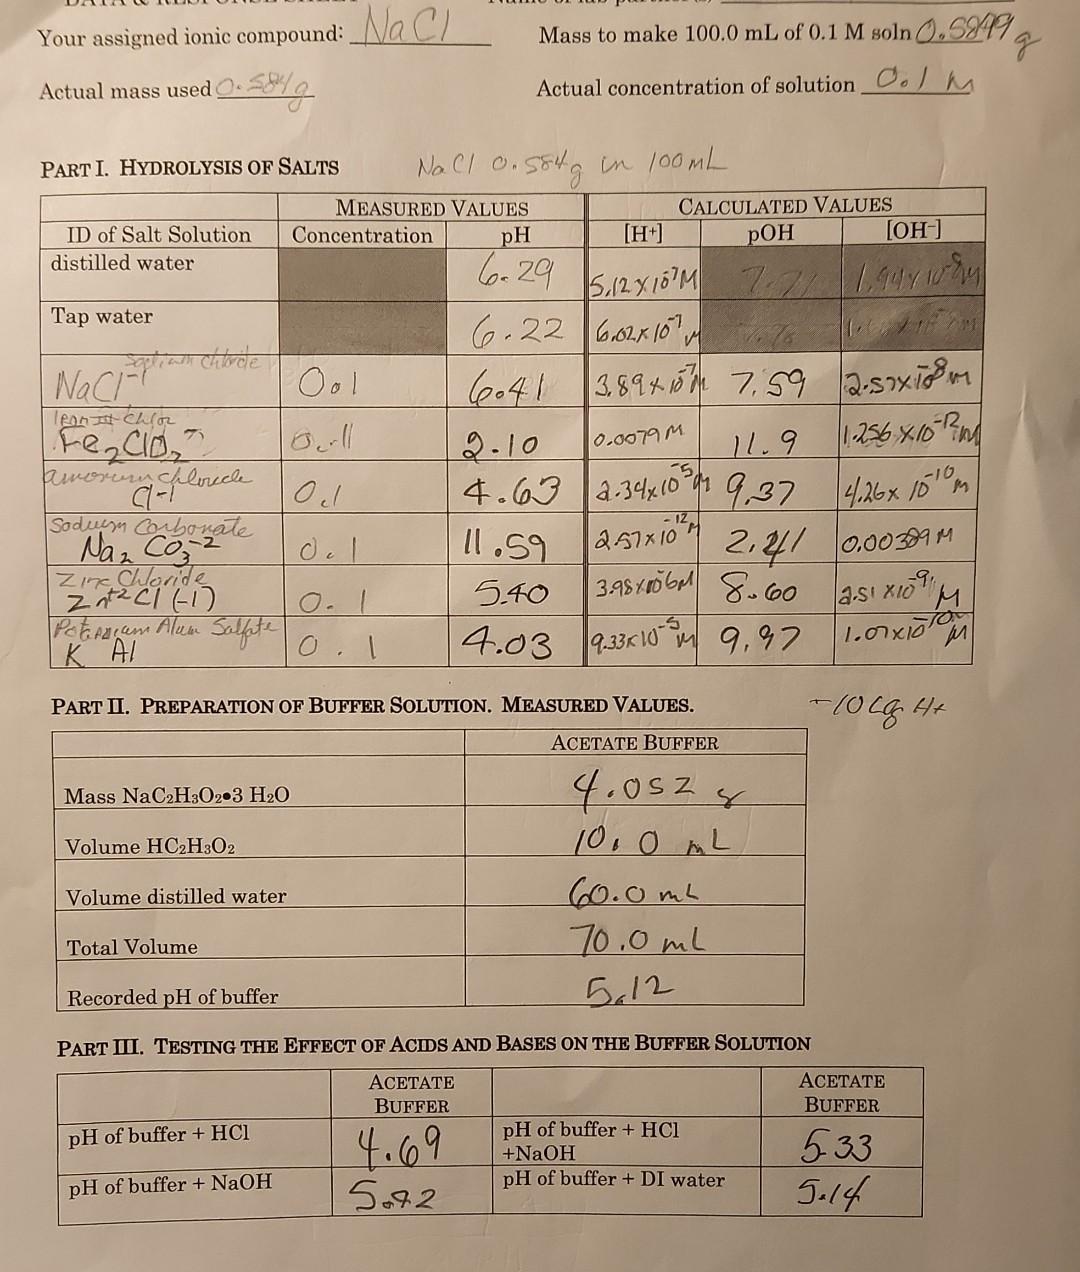 Your assigned ionic compound: NaCl Mass to make 100.0 mL of 0.1 M soln 0.5849 g
Actual mass used 0.584 g Actual concentration of solution 0.1 M
PART I. HYDROLYSIS OF SALTS NaCl 0.584g in 100mL
MEASURED VALUES CALCULATED VALUES
ID of Salt Solution Concentration pH [H+] pOH [OH-]
distilled water 6.29 5.12 x 10⁻⁷ M 7.71 1.94 x 10⁻⁸ M
Tap water 6.22 6.02 x 10⁻⁷ M
Sodium chloride
NaCl⁻¹ 0.1 6.41 3.89 x 10⁻⁷ M 7.59 2.57x10⁻⁸ M
Fe₂ClO₂ 2.10 0.0079 M 11.9 1.256 x 10⁻¹² M
chloride
Cl-1 0.1 4.63 2.34x10⁻⁵ M 9.37 4.26x 10⁻¹⁰ M
Sodium Carbonate
Na₂ CO₃⁻² 0.1 11.59 2.57x10⁻¹² M 2.41 0.00389 M
Zinc Chloride
Zn⁺² Cl (-1) 0.1 5.40 3.98x10⁻⁶M 8.60 2.51 x10⁻⁹ M
Potassium Alum Salfate
K Al 0.1 4.03 9.33x10⁻⁵ M 9.97 1.07x10⁻¹⁰ M
PART II. PREPARATION OF BUFFER SOLUTION. MEASURED VALUES. -10Lg H+
ACETATE BUFFER
Mass NaC₂H₃O₂•3 H₂O 4.052 g
Volume HC₂H₃O₂ 10.0 mL
Volume distilled water 60.0 mL
Total Volume 70.0 mL
Recorded pH of buffer 5.12
PART III. TESTING THE EFFECT OF ACIDS AND BASES ON THE BUFFER SOLUTION
ACETATE ACETATE
BUFFER BUFFER
pH of buffer + HCl 4.69 pH of buffer + HCl
+NaOH 5.33
pH of buffer + NaOH pH of buffer + DI water 5.14